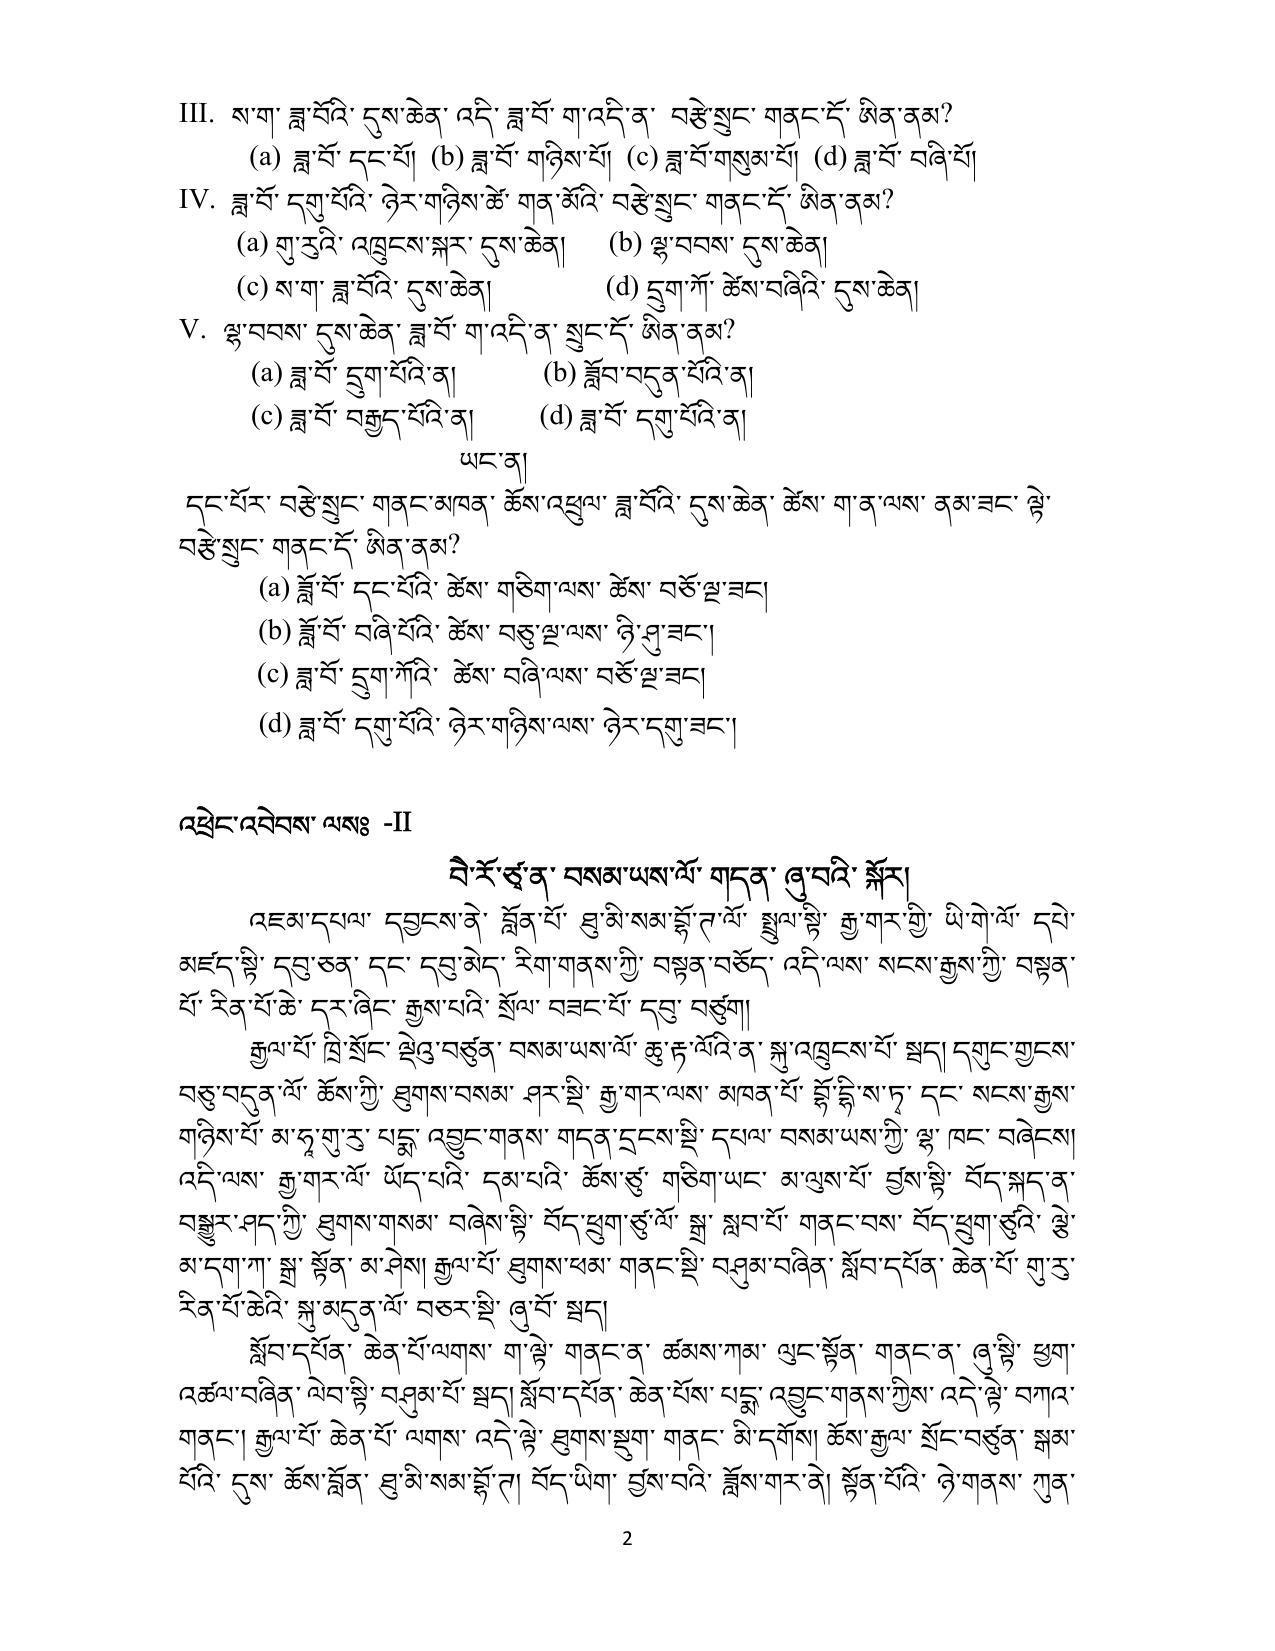 III. ས་ག་ ཟླ་བོའི་ དུས་ཆེན་ འདི་ ཟླ་བོ་ ག་འདི་ན་ བརྩེ་སྲུང་ གནང་དོ་ ཨིན་ནམ?
(a) ཟླ་བོ་ དང་པོ། (b) ཟླ་བོ་ གཉིས་པོ། (c) ཟླ་བོ་གསུམ་པོ། (d) ཟླ་བོ་ བཞི་པོ།
IV. ཟླ་བོ་ དགུ་པོའི་ ཉེར་གཉིས་ཚེ་ གན་མོའི་ བརྩེ་སྲུང་ གནང་དོ་ ཨིན་ནམ?
(a) གུ་རུའི་ འཁྲུངས་སྐར་ དུས་ཆེན། (b) ལྷ་བབས་ དུས་ཆེན།
(c) ས་ག་ ཟླ་བོའི་ དུས་ཆེན། (d) དྲུག་ཀོ་ ཚེས་བཞིའི་ དུས་ཆེན།
V. ལྷ་བབས་ དུས་ཆེན་ ཟླ་བོ་ ག་འདི་ན་ སྲུང་དོ་ ཨིན་ནམ?
(a) ཟླ་བོ་ དྲུག་པོའི་ན། (b) ཟློབ་བདུན་པོའི་ན།
(c) ཟླ་བོ་ བརྒྱད་པོའི་ན། (d) ཟླ་བོ་ དགུ་པོའི་ན།
ཡང་ན།
དང་པོར་ བརྩེ་སྲུང་ གནང་མཁན་ ཆོས་འཕྲུལ་ ཟླ་བོའི་ དུས་ཆེན་ ཚེས་ ག་ན་ལས་ ནམ་ཟང་ ལྟེ་
བརྩེ་སྲུང་ གནང་དོ་ ཨིན་ནམ?
(a) ཟློ་བོ་ དང་པོའི་ ཚེས་ གཅིག་ལས་ ཚེས་ བཅོ་ལྔ་ཟང།
(b) ཟློ་བོ་ བཞི་པོའི་ ཚེས་ བཅུ་ལྔ་ལས་ ཉི་ཤུ་ཟང་།
(c) ཟླ་བོ་ དྲུག་ཀོའི་ ཚེས་ བཞི་ལས་ བཅོ་ལྔ་ཟང།
(d) ཟླ་བོ་ དགུ་པོའི་ ཉེར་གཉིས་ལས་ ཉེར་དགུ་ཟང་།
འཕྲེང་འབེབས་ ལསཿ -II
བེ་རོ་ཙྭ་ན་ བསམ་ཡས་ལོ་ གདན་ ཞུ་བའི་ སྐོར།
འཇམ་དཔལ་ དབྱངས་ནེ་ བློན་པོ་ ཐུ་མི་སམ་བྷོ་ཊ་ལོ་ སྤྲུལ་སྟི་ རྒྱ་གར་གྱི་ ཡི་གེ་ལོ་ དཔེ་
མཛད་སྟི་ དབུ་ཅན་ དང་ དབུ་མེད་ རིག་གནས་ཀྱི་ བསྟན་བཅོད་ འདི་ལས་ སངས་རྒྱས་ཀྱི་ བསྟན་
པོ་ རིན་པོ་ཆེ་ དར་ཞིང་ རྒྱས་པའི་ སྲོལ་ བཟང་པོ་ དབུ་ བཙུག།
རྒྱལ་པོ་ ཁྲི་སྲོང་ ལྡེའུ་བཙུན་ བསམ་ཡས་ལོ་ ཆུ་རྟ་ལོའི་ན་ སྐུ་འཁྲུངས་པོ་ སྦད། དགུང་གྱངས་
བཅུ་བདུན་ལོ་ ཆོས་ཀྱི་ ཐུགས་བསམ་ ཤར་སྡི་ རྒྱ་གར་ལས་ མཁན་པོ་ བོྷ་དྷི་ས་ཏྭ་ དང་ སངས་རྒྱས་
གཉིས་པོ་ མ་ཧཱ་གུ་རུ་ པདྨ་ འབྱུང་གནས་ གདན་དྲངས་སྡི་ དཔལ་ བསམ་ཡས་ཀྱི་ ལྷ་ ཁང་ བཞེངས།
འདི་ལས་ རྒྱ་གར་ལོ་ ཡོད་པའི་ དམ་པའི་ ཆོས་ཙུ་ གཅིག་ཡང་ མ་ལུས་པོ་ བྱས་སྟི་ བོད་སྐད་ན་
བསྒྱུར་ཤད་ཀྱི་ ཐུགས་གསམ་ བཞེས་སྟི་ བོད་ཕྲུག་ཙུ་ལོ་ སྒྲ་ སླབ་པོ་ གནང་བས་ བོད་ཕྲུག་ཙུའི་ ལྕེ་
མ་དག་ཀ་ སྒྲ་ སྟོན་ མ་ཤེས། རྒྱལ་པོ་ ཐུགས་ཕམ་ གནང་སྡི་ བཤུམ་བཞིན་ སློབ་དཔོན་ ཆེན་པོ་ གུ་རུ་
རིན་པོ་ཆེའི་ སྐུ་མདུན་ལོ་ བཅར་སྡི་ ཞུ་བོ་ སྦད།
སློབ་དཔོན་ ཆེན་པོ་ལགས་ ག་ལྟེ་ གནང་ན་ ཚམས་ཀམ་ ལུང་སྟོན་ གནང་ན་ ཞུ་སྟི་ ཕྱག་
འཚལ་བཞིན་ ལེབ་སྟི་ བཤུམ་པོ་ སྦད། སློབ་དཔོན་ ཆེན་པོས་ པདྨ་ འབྱུང་གནས་ཀྱིས་ འདེ་ལྟེ་ བཀའ་
གནང་། རྒྱལ་པོ་ ཆེན་པོ་ ལགས་ འདེ་ལྟེ་ ཐུགས་སྡུག་ གནང་ མི་དགོས། ཆོས་རྒྱལ་ སྲོང་བཙུན་ སྒམ་
པོའི་ དུས་ ཆོས་བློན་ ཐུ་མི་སམ་བྷོ་ཊ། བོད་ཡིག་ བྱས་བའི་ ཟློས་གར་ནེ། སྟོན་པོའི་ ཉེ་གནས་ ཀུན་
2